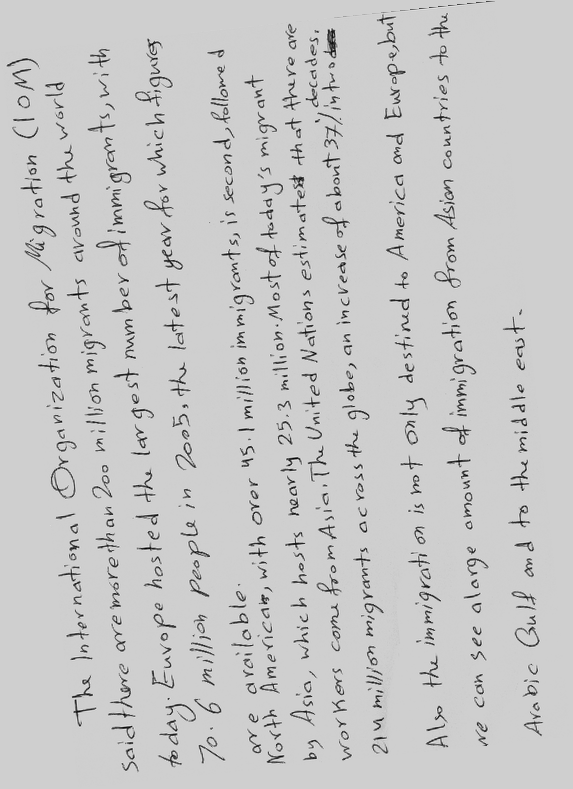 The International Organization for Migration (IOM)
said there are more than 200 million migrants around the world
today. Europe hosted the largest number of immigrants, with
70.6 million people in 2005, the latest year for which figures
are available.
North America, with over 45.1 million immigrants, is second, followed
by Asia, which hosts nearly 25.3 million. Most of today's migrant
workers come from Asia. The United Nations estimates that there are
214 million migrants across the globe, an increase of about 37% in two decades.
Also the immigration is not only destined to America and Europe, but
we can see a large amount of immigration from Asian countries to the
Arabic Gulf and to the middle east.